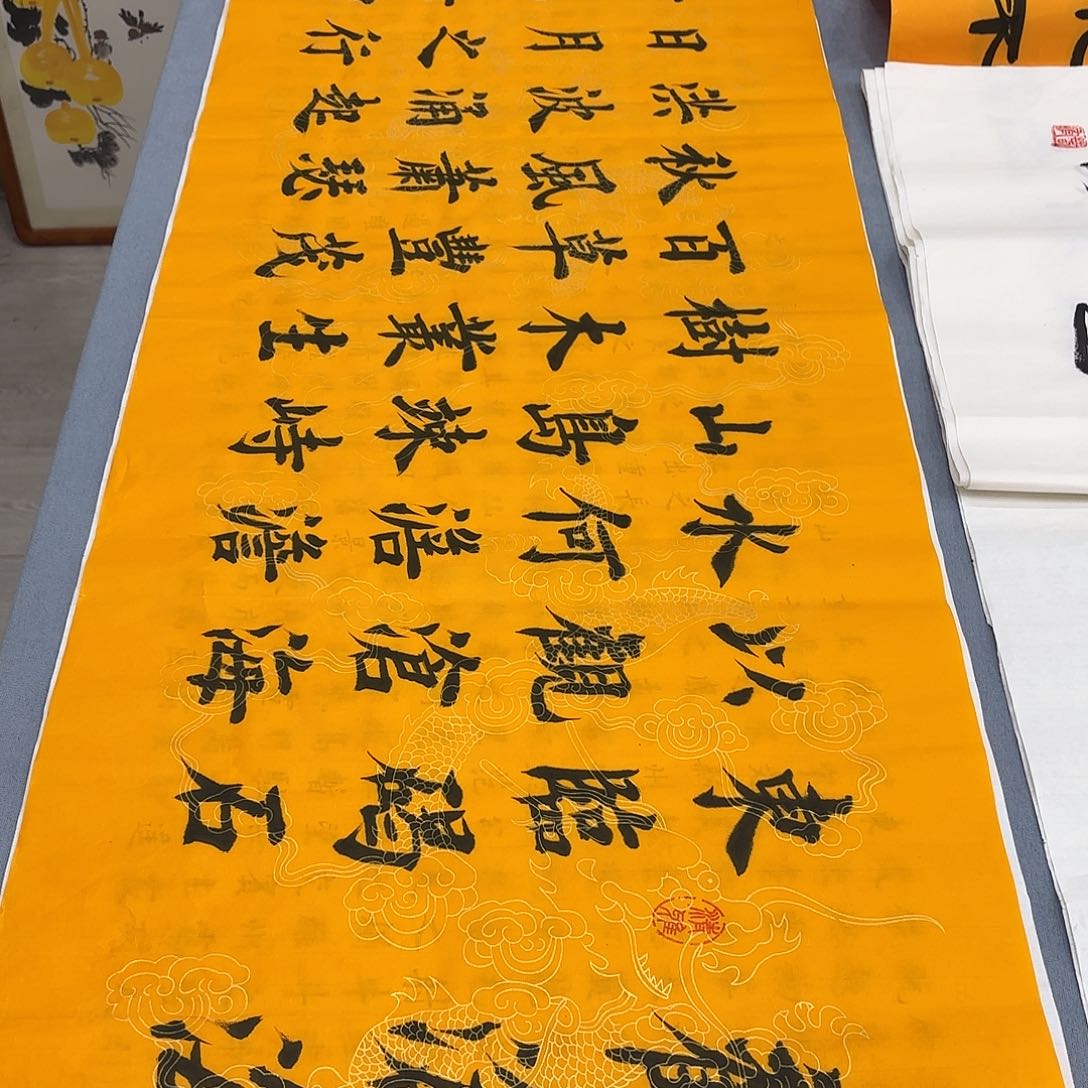 東臨碣石
以觀滄海
水何澹澹
山島竦峙
樹木叢生
百草豐茂
秋風蕭瑟
洪波涌起
日月之行